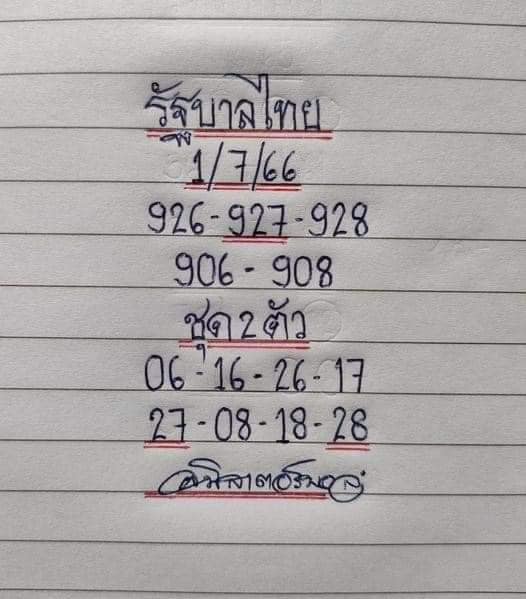 รัฐบาลไทย
1/7/66
926-927-928
906-908
ชุด 2 ตัว
06-16-26-17
27-08-18-28